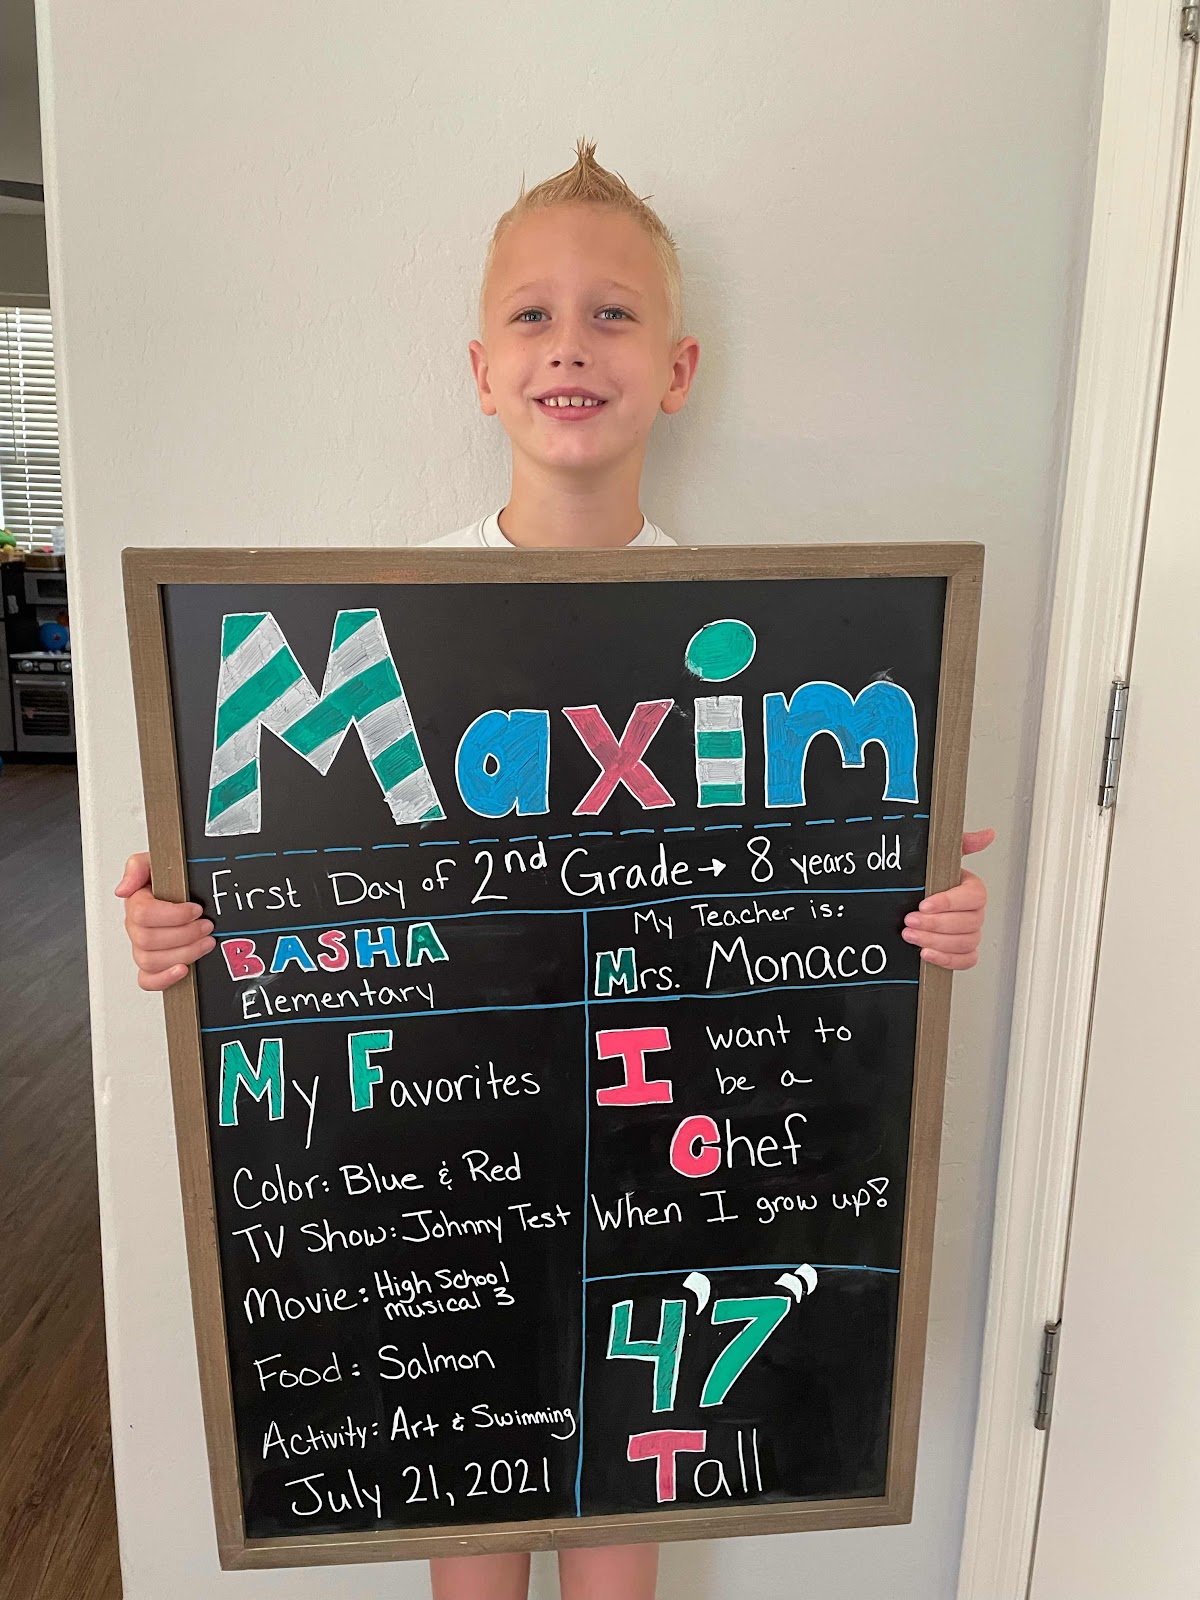 Maxim
First Day of 2nd Grade → 8 years old
BASHA
Elementary
My Teacher is:
Mrs. Monaco
My Favorites
Color: Blue & Red
TV Show: Johnny Test
Movie: High School
Musical 3
Food: Salmon
Activity: Art & Swimming
July 21, 2021
I want to
be a
Chef
When I grow up!
4'7"
Tall